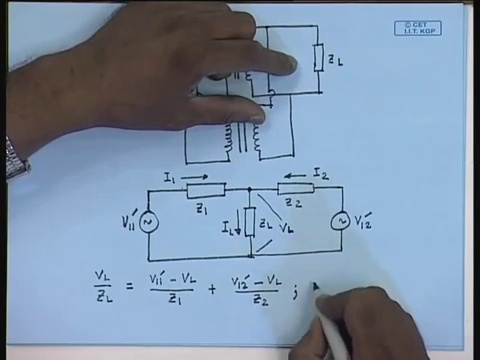 © CET
I.I.T. KGP
Z_L
I_1 I_2
Z_1 Z_2
V_11' I_L Z_L V_L V_12'
V_L/Z_L = (V_11' - V_L)/Z_1 + (V_12' - V_L)/Z_2 ;